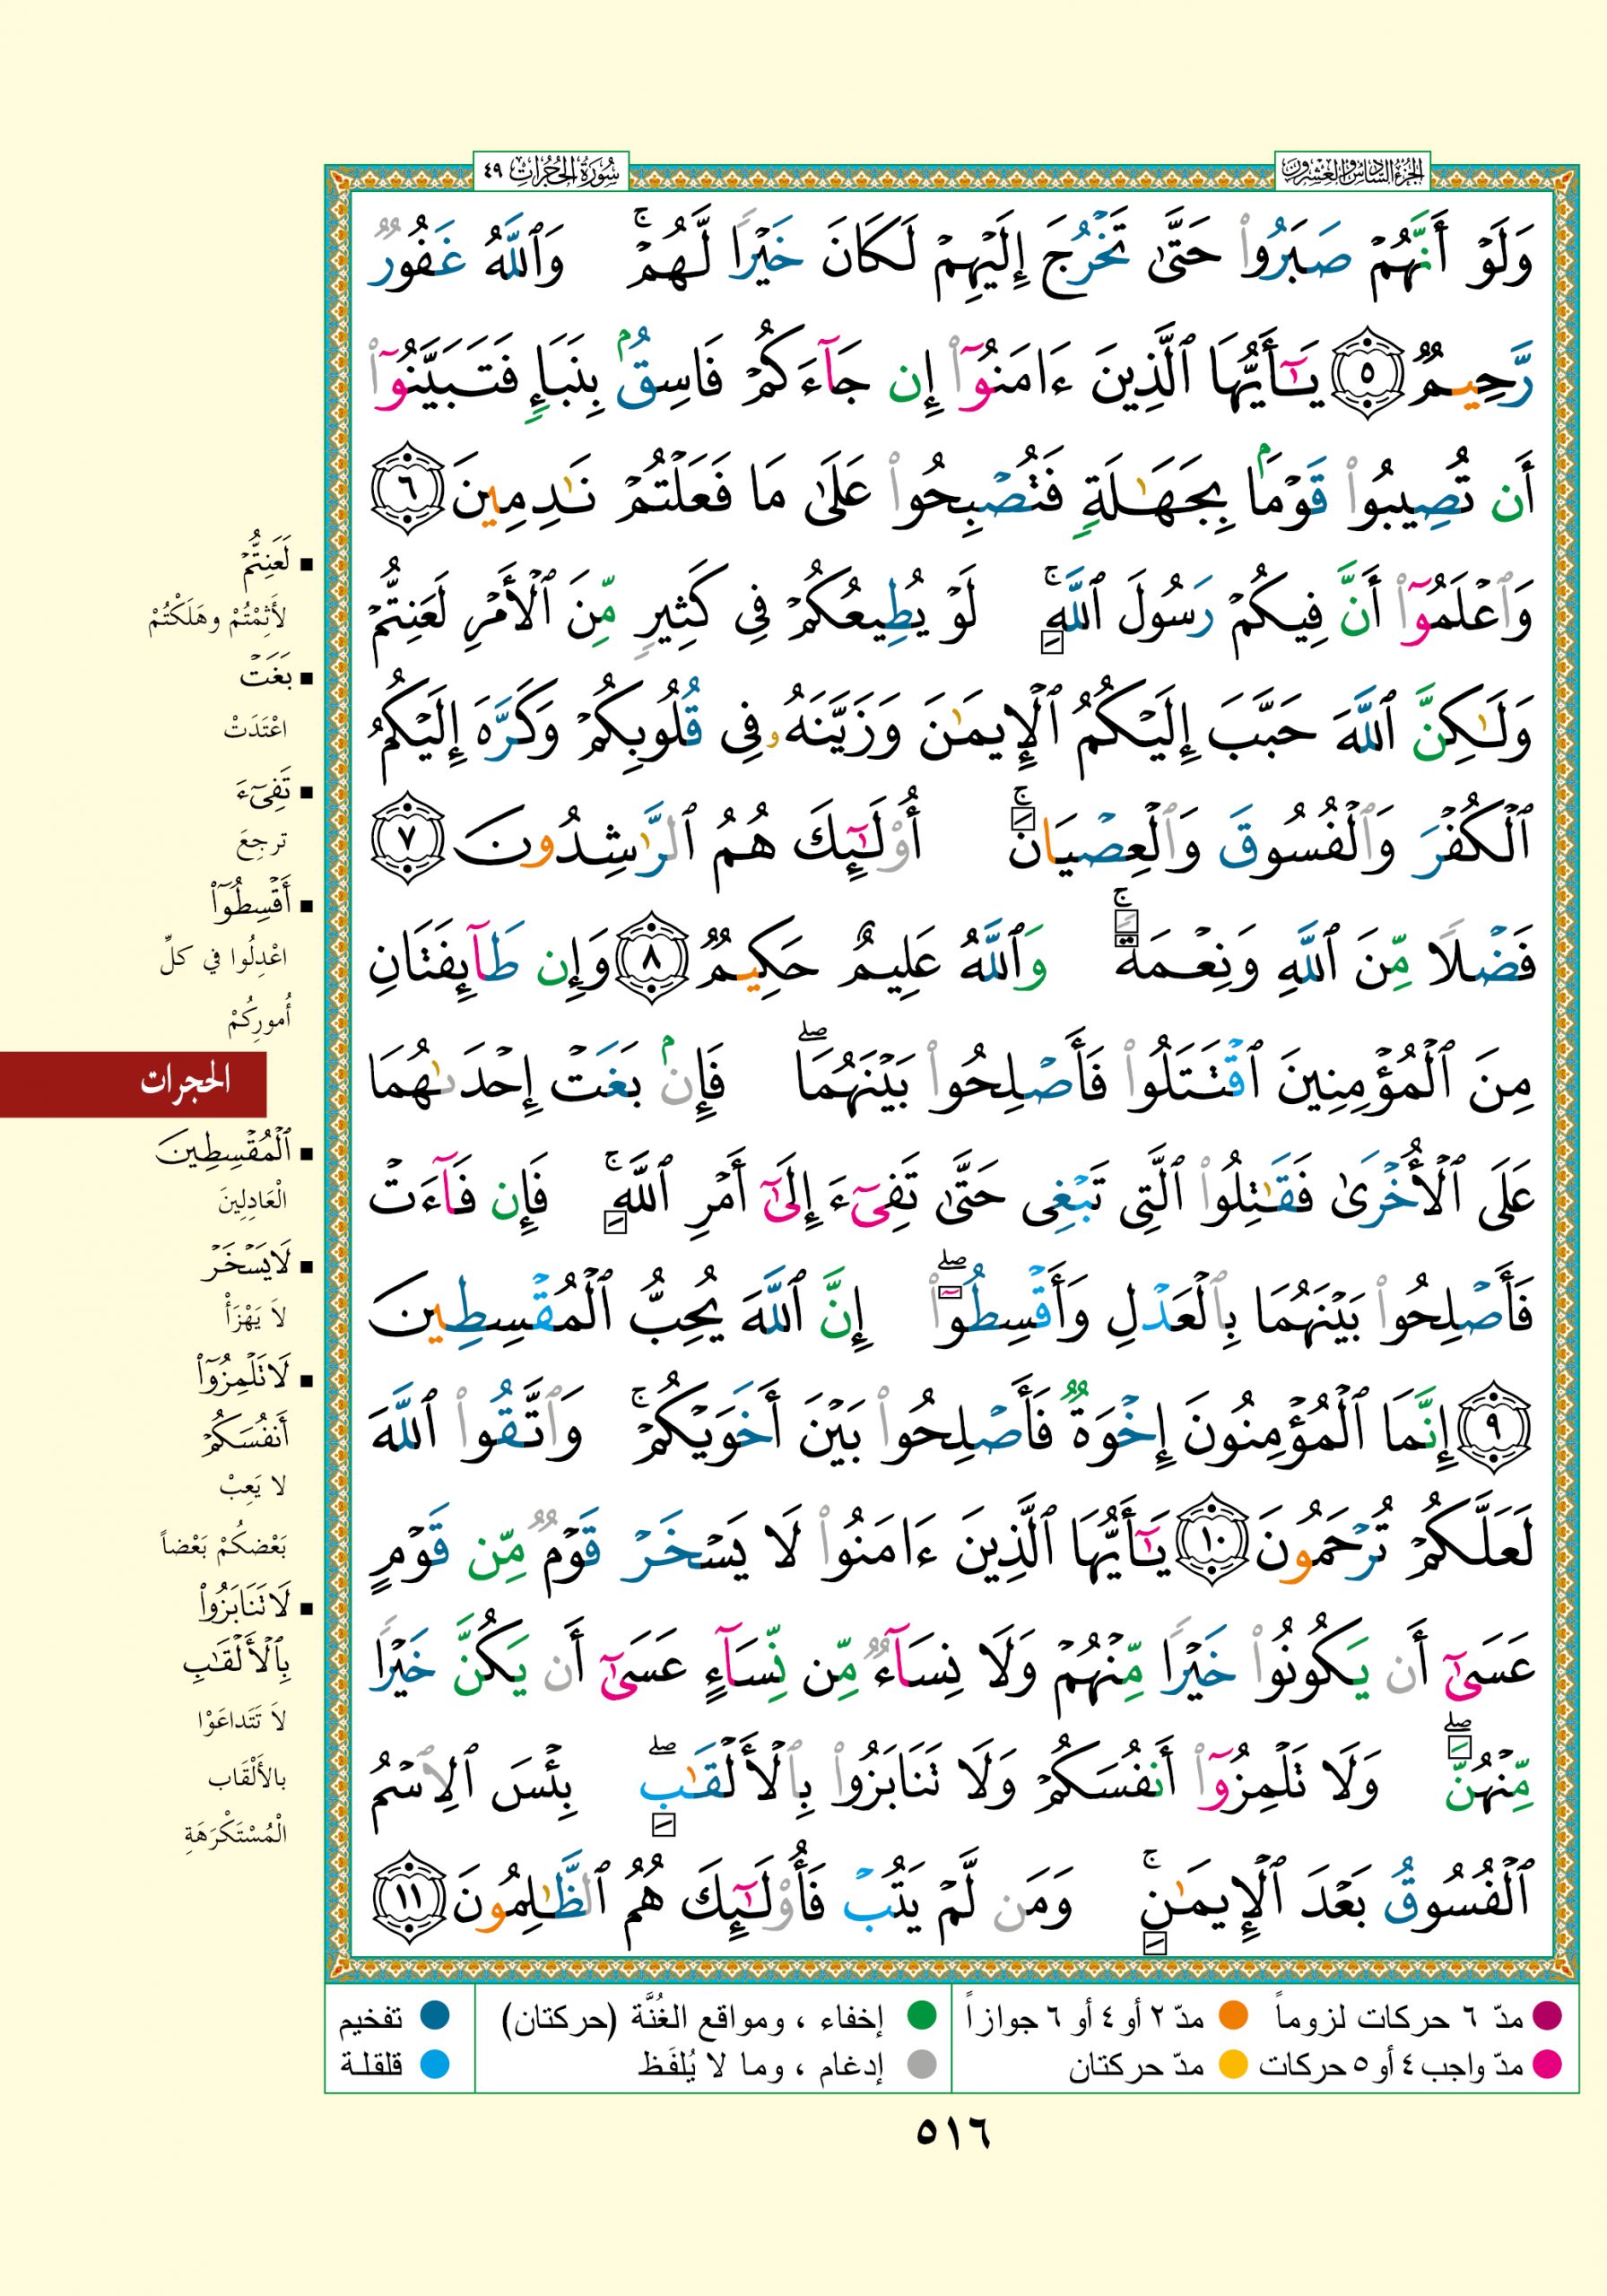 الجزء السادس والعشرون
سورة الحجرات ٤٩
وَلَوْ أَنَّهُمْ صَبَرُوا۟ حَتَّىٰ تَخْرُجَ إِلَيْهِمْ لَكَانَ خَيْرًا لَّهُمْ ۚ وَٱللَّهُ غَفُورٌ
رَّحِيمٌ ٥ يَـٰٓأَيُّهَا ٱلَّذِينَ ءَامَنُوٓا۟ إِن جَآءَكُمْ فَاسِقٌۢ بِنَبَإٍ فَتَبَيَّنُوٓا۟
أَن تُصِيبُوا۟ قَوْمًۢا بِجَهَـٰلَةٍ فَتُصْبِحُوا۟ عَلَىٰ مَا فَعَلْتُمْ نَـٰدِمِينَ ٦
وَٱعْلَمُوٓا۟ أَنَّ فِيكُمْ رَسُولَ ٱللَّهِ ۚ لَوْ يُطِيعُكُمْ فِى كَثِيرٍ مِّنَ ٱلْأَمْرِ لَعَنِتُّمْ
وَلَـٰكِنَّ ٱللَّهَ حَبَّبَ إِلَيْكُمُ ٱلْإِيمَـٰنَ وَزَيَّنَهُۥ فِى قُلُوبِكُمْ وَكَرَّهَ إِلَيْكُمُ
ٱلْكُفْرَ وَٱلْفُسُوقَ وَٱلْعِصْيَانَ ۚ أُو۟لَـٰٓئِكَ هُمُ ٱلرَّٰشِدُونَ ٧
فَضْلًا مِّنَ ٱللَّهِ وَنِعْمَةً ۚ وَٱللَّهُ عَلِيمٌ حَكِيمٌ ٨ وَإِن طَآئِفَتَانِ
مِنَ ٱلْمُؤْمِنِينَ ٱقْتَتَلُوا۟ فَأَصْلِحُوا۟ بَيْنَهُمَا ۖ فَإِنۢ بَغَتْ إِحْدَىٰهُمَا
عَلَى ٱلْأُخْرَىٰ فَقَـٰتِلُوا۟ ٱلَّتِى تَبْغِى حَتَّىٰ تَفِىٓءَ إِلَىٰٓ أَمْرِ ٱللَّهِ ۚ فَإِن فَآءَتْ
فَأَصْلِحُوا۟ بَيْنَهُمَا بِٱلْعَدْلِ وَأَقْسِطُوٓا۟ ۖ إِنَّ ٱللَّهَ يُحِبُّ ٱلْمُقْسِطِينَ
٩ إِنَّمَا ٱلْمُؤْمِنُونَ إِخْوَةٌ فَأَصْلِحُوا۟ بَيْنَ أَخَوَيْكُمْ ۚ وَٱتَّقُوا۟ ٱللَّهَ
لَعَلَّكُمْ تُرْحَمُونَ ١٠ يَـٰٓأَيُّهَا ٱلَّذِينَ ءَامَنُوا۟ لَا يَسْخَرْ قَوْمٌ مِّن قَوْمٍ
عَسَىٰٓ أَن يَكُونُوا۟ خَيْرًا مِّنْهُمْ وَلَا نِسَآءٌ مِّن نِّسَآءٍ عَسَىٰٓ أَن يَكُنَّ خَيْرًا
مِّنْهُنَّ ۖ وَلَا تَلْمِزُوٓا۟ أَنفُسَكُمْ وَلَا تَنَابَزُوا۟ بِٱلْأَلْقَـٰبِ ۖ بِئْسَ ٱلِٱسْمُ
ٱلْفُسُوقُ بَعْدَ ٱلْإِيمَـٰنِ ۚ وَمَن لَّمْ يَتُبْ فَأُو۟لَـٰٓئِكَ هُمُ ٱلظَّـٰلِمُونَ ١١
▪ لَعَنِتُّمْ
لأَثِمْتُمْ وهَلَكْتُمْ
▪ بَغَتْ
اعْتَدَتْ
▪ تَفِىٓءَ
ترجِعَ
▪ أَقْسِطُوٓا۟
اعْدِلُوا في كلِّ
أُمورِكُمْ
الحجرات
▪ ٱلْمُقْسِطِينَ
الْعَادِلِينَ
▪ لَا يَسْخَرْ
لاَ يَهْزَأْ
▪ لَا تَلْمِزُوٓا۟
أَنفُسَكُمْ
لا يَعِبْ
بَعْضكُمْ بَعْضاً
▪ لَا تَنَابَزُوا۟
بِٱلْأَلْقَـٰبِ
لاَ تَتَداعَوْا
بالأَلْقَاب
الْمُسْتَكْرَهَةِ
مدّ ٦ حركات لزوماً مدّ ٢ أو ٤ أو ٦ جوازاً إخفاء ، ومواقع الغُنَّة (حركتان) تفخيم
مدّ واجب ٤ أو ٥ حركات مدّ حركتان إدغام ، وما لا يُلفَظ قلقلة
٥١٦